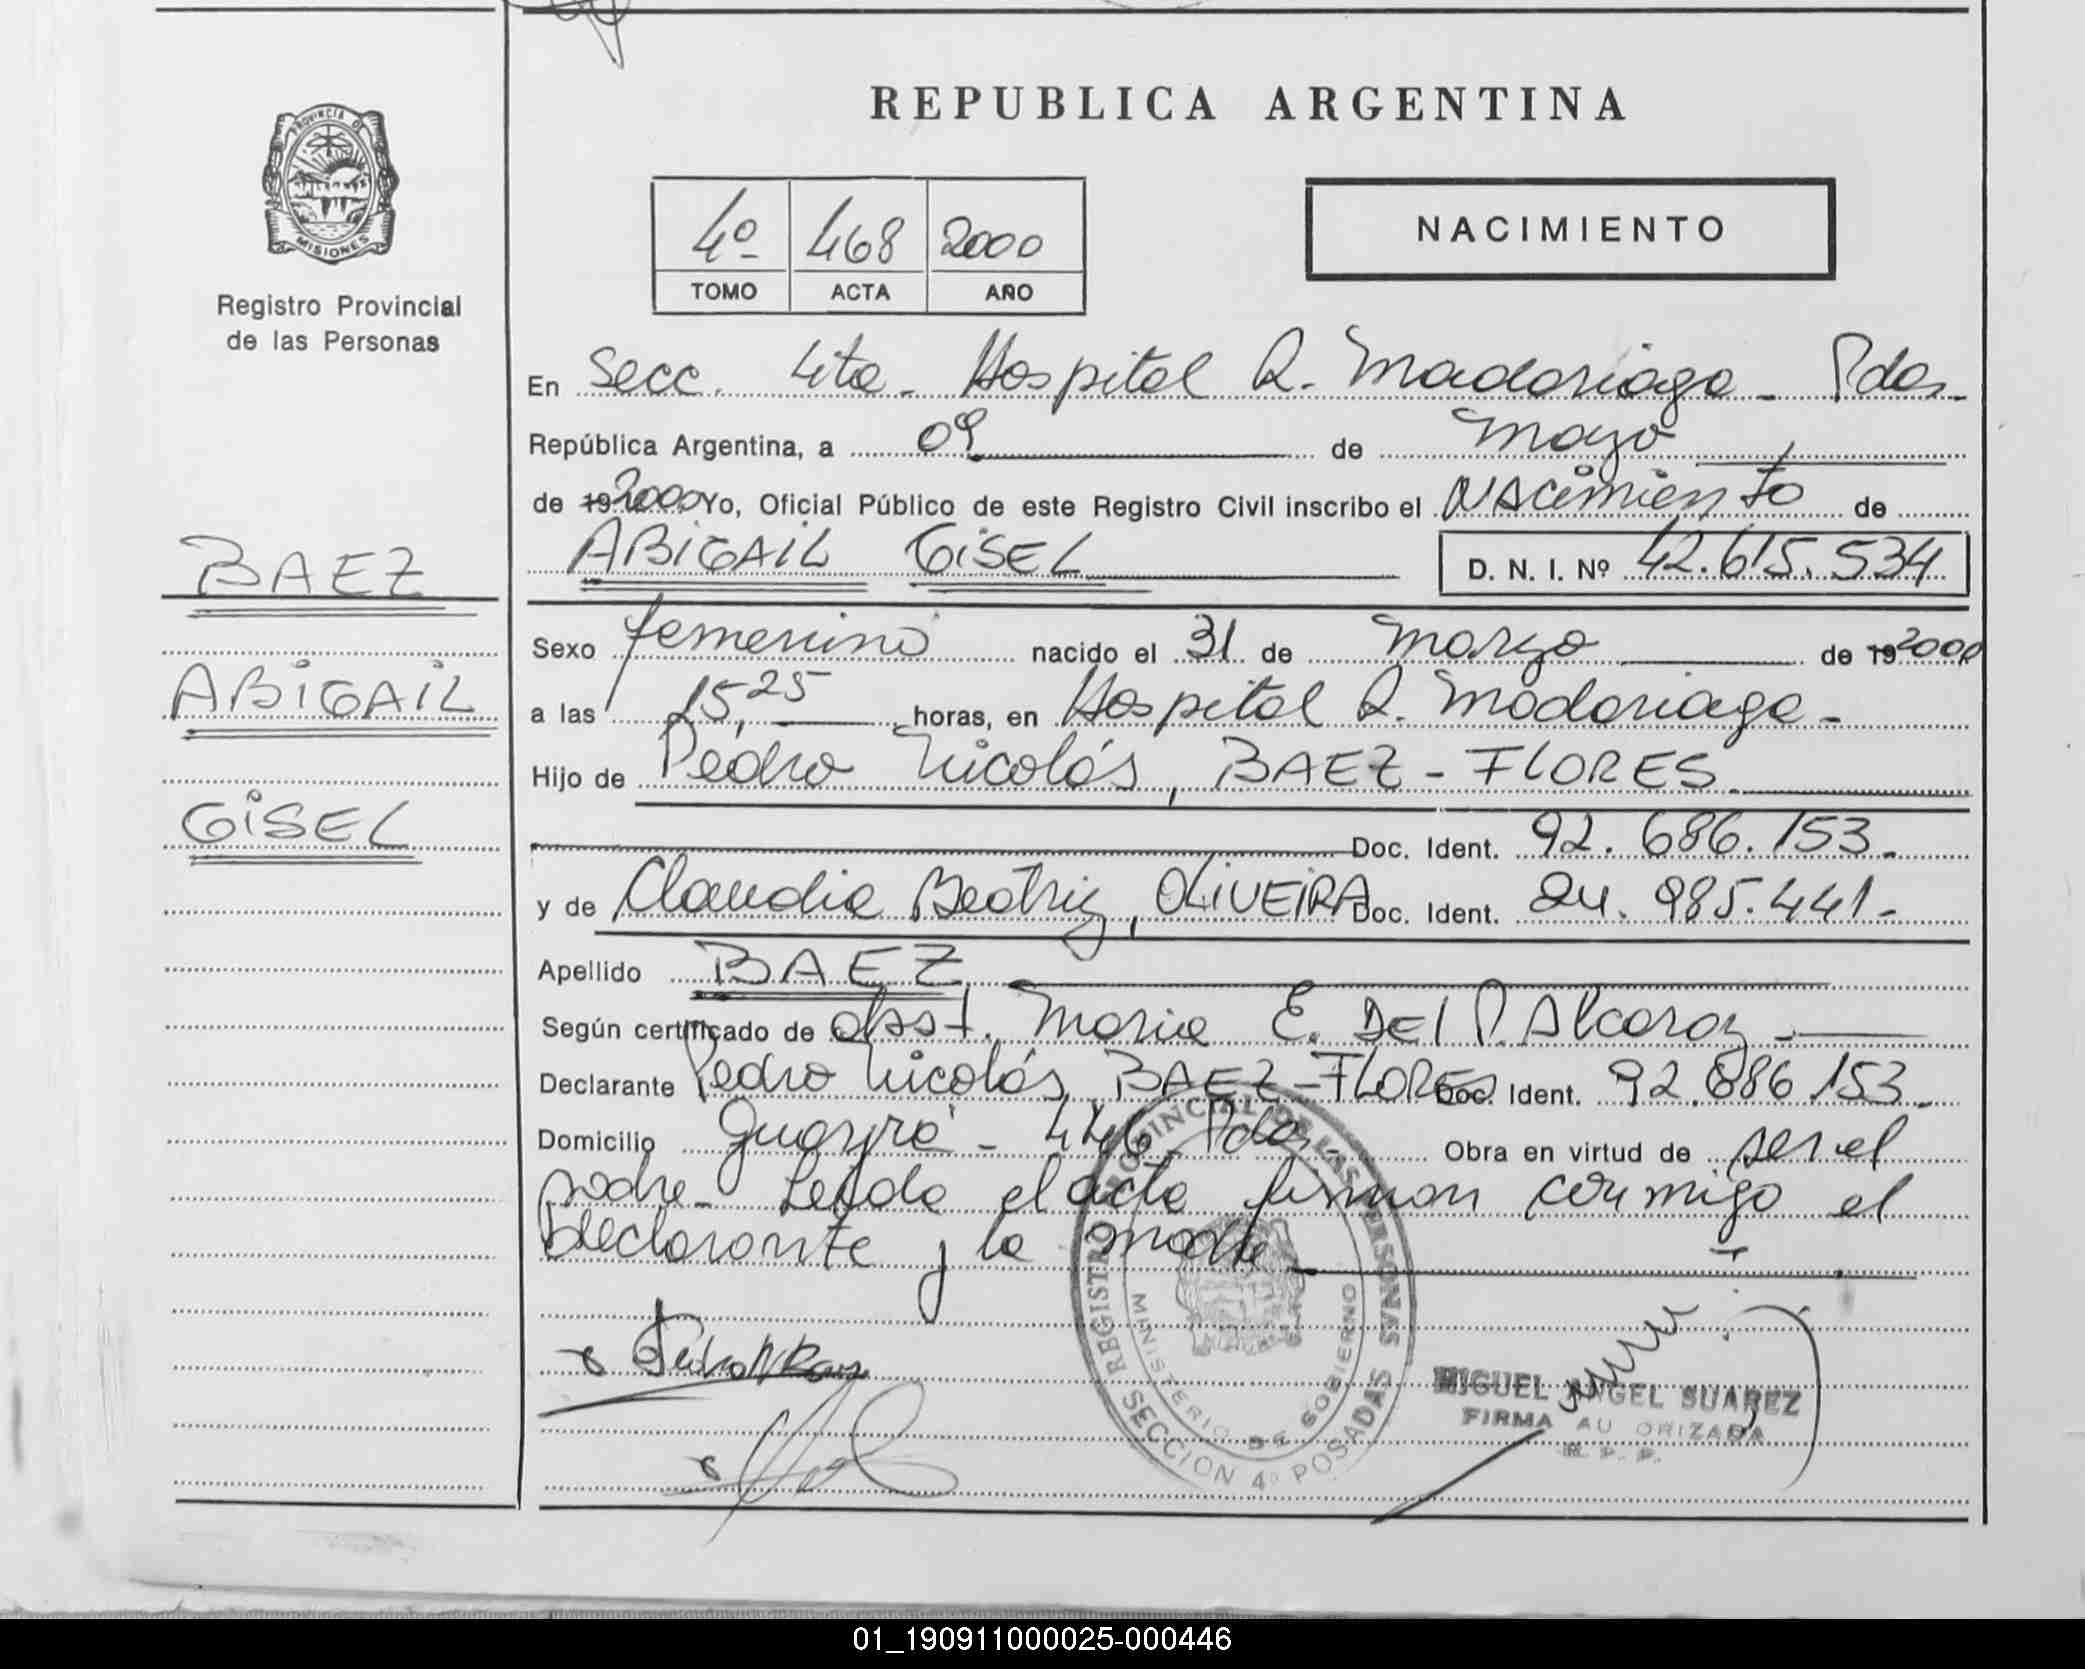 REPUBLICA ARGENTINA
PROVINCIA DE
MISIONES
Registro Provincial
de las Personas
4º 468 2000
TOMO ACTA AÑO
NACIMIENTO
En Secc. 4ta - Hospital R. Madariaga - Pdas-
República Argentina, a 09 de Mayo
de 19 2000 Yo, Oficial Público de este Registro Civil inscribo el Nacimiento de
ABIGAIL GISEL D. N. I. Nº 42.615.534
BAEZ
ABIGAIL
GISEL
Sexo femenino nacido el 31 de Marzo de 19 2000
a las 15,25 horas, en Hospital R. Madariaga -
Hijo de Pedro Nicolás, BAEZ - FLORES
Doc. Ident. 92.686.153-
y de Claudia Beatriz, OLIVEIRA Doc. Ident. 24.985.441-
Apellido BAEZ
Según certificado de obst. Maria E. DEl P. Alcaraz -
Declarante Pedro Nicolás, BAEZ - FLORES Doc. Ident. 92.686.153-
Domicilio Guayrá - 446 Pdas - Obra en virtud de ser el
padre - Leída el acta firman conmigo el
declarante y la madre
Pedro N Baez
REGISTRO PROVINCIAL DE LAS PERSONAS
MINISTERIO DE GOBIERNO
SECCION 4ª POSADAS
MIGUEL ANGEL SUAREZ
FIRMA AUTORIZADA
R. P. P.
01_190911000025-000446